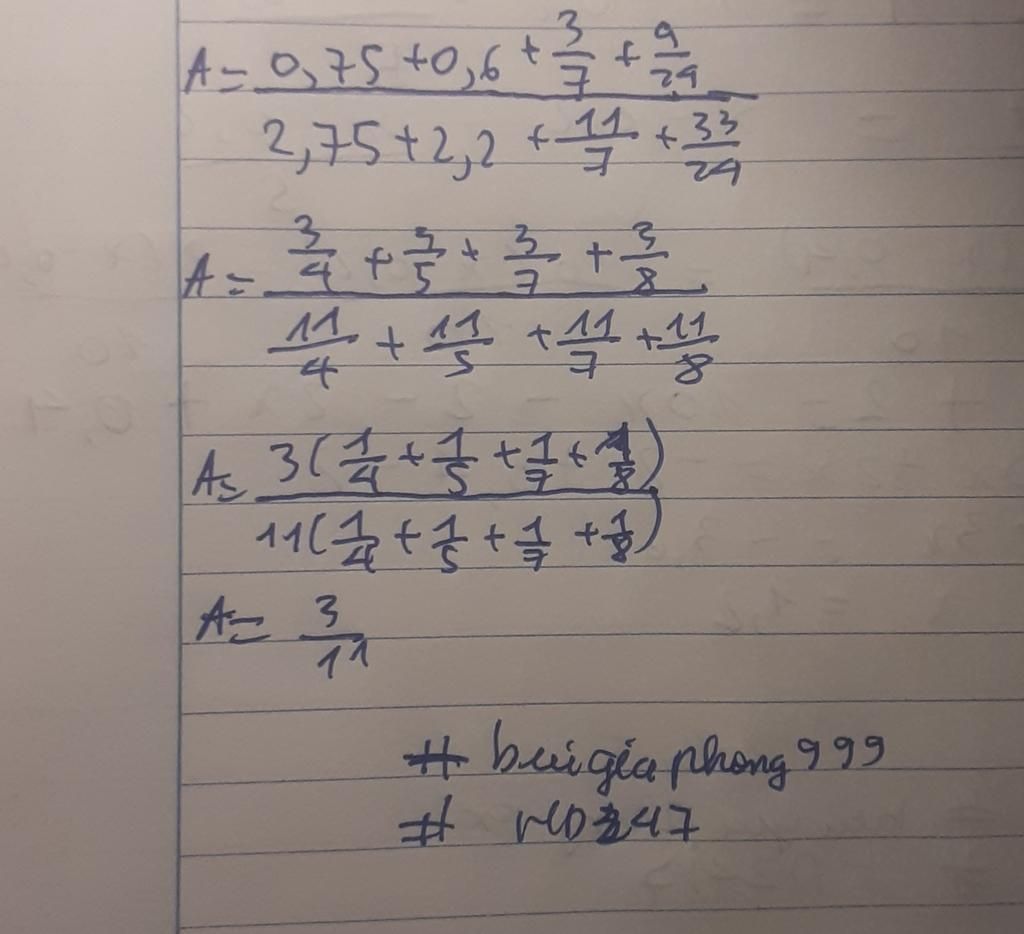 A = (0,75 + 0,6 + 3/7 + 9/24) / (2,75 + 2,2 + 11/7 + 33/24)
A = (3/4 + 3/5 + 3/7 + 3/8) / (11/4 + 11/5 + 11/7 + 11/8)
A = 3(1/4 + 1/5 + 1/7 + 1/8) / 11(1/4 + 1/5 + 1/7 + 1/8)
A = 3/11
# buigiaphong999
#